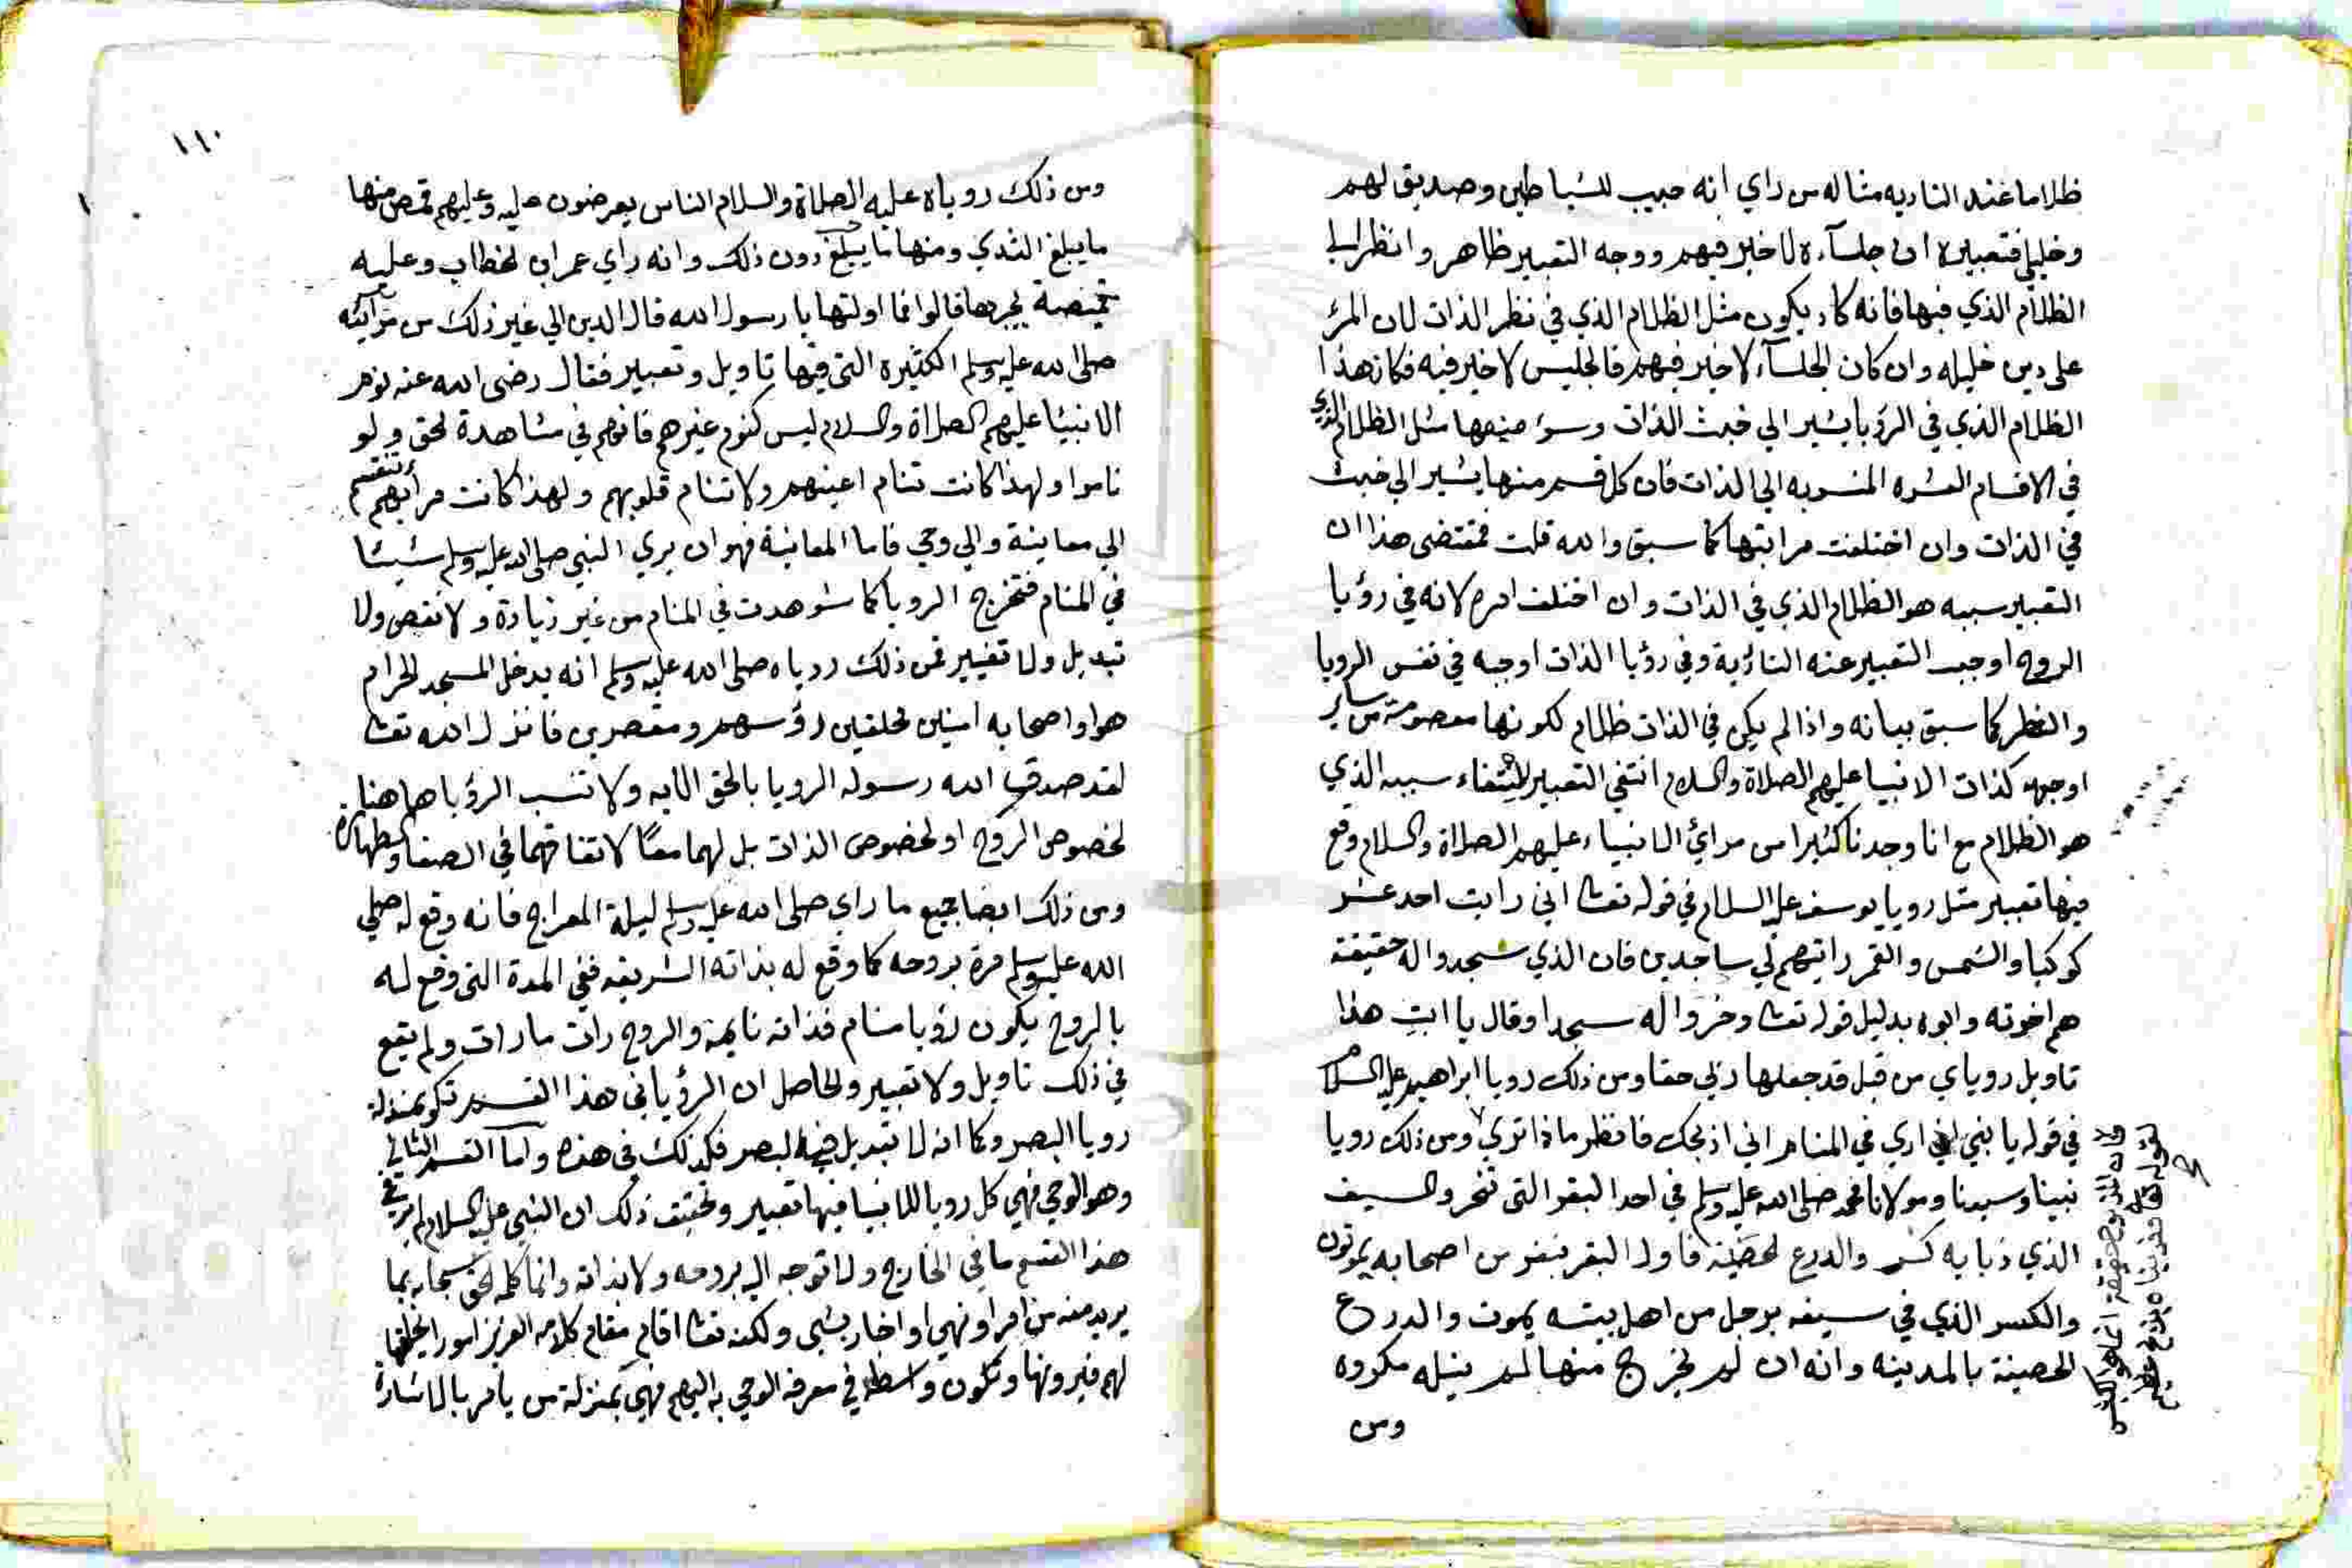 ظلاما عند التاديه مثاله من راي انه حبيب للشياطين وصديق لهم
وخليل فتعبيره ان جلسآءه لا خير فيهم ووجه التعبير ظاهر وانظر الي
الظلام الذي فيها فانه كاد يكون مثل الظلام الذي في نظر الذات لان المرء
علي دين خليله وان كان الجلسآء لا خير فيهم فالجليس لا خير فيه فكان هذا
الظلام الذي في الرؤيا يشير الي خبث الذات وسوء صنيعها مثل الظلام الذي
في الاقسام العشره المنسوبه الي الذات فان كل قسم منها يشير الي خبث
في الذات وان اختلفت مراتبها كما سبق والله قلت فمقتضى هذا ان
التعبير سببه هو الظلام الذي في الذات وان اختلف امره لانه في رؤيا
الروح اوجب التعبير عنه التأدية وفي رؤيا الذات اوجبه في نفس الرويا
والنظر كما سبق بيانه واذا لم يكن في الذات ظلام لكونها معصومة من ساير
اوجهه كذات الانبيا عليهم الصلاة والسلام انتفي التعبير لانتفاء سببه الذي
هو الظلام مع انا وجدنا كثيرا من مرائي الانبياء عليهم الصلاة والسلام وقع
فيها تعبير مثل رويا يوسف عليه السلام في قوله تعالى اني رايت احد عشر
كوكبا والشمس والقمر رايتهم لي ساجدين فان الذي سجدوا له حقيقة
هم اخوته وابوه بدليل قوله تعالى وخروا له سجدا وقال يا ابت هذا
تاويل روياي من قبل قد جعلها ربي حقا ومن ذلك رويا ابراهيم عليه السلام
في قوله يا بني اني اري في المنام اني اذبحك فانظر ماذا تري ومن ذلك رويا
نبينا وسيدنا ومولانا محمد صلى الله عليه وسلم في احد البقر التي تنحر والسيف
الذي ذبابه كسر والدرع الحصينة فاول البقر بنفر من اصحابه يموتون
والكسر الذي في سيفه برجل من اهل بيته يموت والدرع
الحصينة بالمدينه وانه ان لم يخرج منها لم ينله مكروه
ومن
فان المذبوح حقيقة انما هو الكبش
لقوله تعالى وفديناه بذبح عظيم
١١٠
ومن ذلك روياه عليه الصلاة والسلام الناس يعرضون عليه وعليهم قمص منها
ما يبلغ الثدي ومنها ما يبلغ دون ذلك وانه راي عمر ابن الخطاب وعليه
قميصه يجرها قالوا فما اولتها يا رسول الله قال الدين الي غير ذلك من مرآئيه
صلى الله عليه وسلم الكثيره التي فيها تاويل وتعبير فقال رضى الله عنه نوم
الانبيا عليهم الصلاة والسلام ليس كنوم غيرهم فانهم في مشاهدة الحق ولو
ناموا ولهذا كانت تنام اعينهم ولا تنام قلوبهم ولهذا كانت مرائيهم تنقسم
الي معاينة والي وحي فاما المعاينة فهو ان يري النبي صلى الله عليه وسلم شيئا
في المنام فتخرج الرويا كما شوهدت في المنام من غير زيادة ولا نقص ولا
تبديل ولا تغيير فمن ذلك روياه صلى الله عليه وسلم انه يدخل المسجد الحرام
هو واصحابه امنين محلقين رؤسهم ومقصرين فانزل الله تعالى
لقد صدق الله رسوله الرويا بالحق الايه ولا تنسب الرؤيا هاهنا
لخصوص الروح او لخصوص الذات بل لهما معًا لاتفاقهما في الصفا والطهارة
ومن ذلك ايضا جميع ما راي صلى الله عليه وسلم ليلة المعراج فانه وقع له صلي
الله عليه وسلم مرة بروحه كما وقع له بذاته الشريفه ففي المدة التي وقع له
بالروح يكون رؤيا منام فذاته نايمة والروح رات ما رات ولم يقع
في ذلك تاويل ولا تعبير والحاصل ان الرؤيا في هذا القسم تكون بمنزلة
رويا البصر وكما انه لا تبديل في البصر فكذلك في هذه واما القسم الثاني
وهو الوحي فهي كل رويا للانبيا فيها تعبير وتحقيق ذلك ان النبي عليه السلام لم ير في
هذا القسم ما في الخارج ولا توجه اليه بروحه ولا بذاته وانما كلمه الحق سبحانه بما
يريد منه من امر او نهي او اخبار بشي ولكنه تعالى اقام مقام كلامه العزيز امورا يخلقها
لهم فيرونها وتكون واسطة في معرفة الوحي به اليهم فهي بمنزلة من يامر بالاشارة